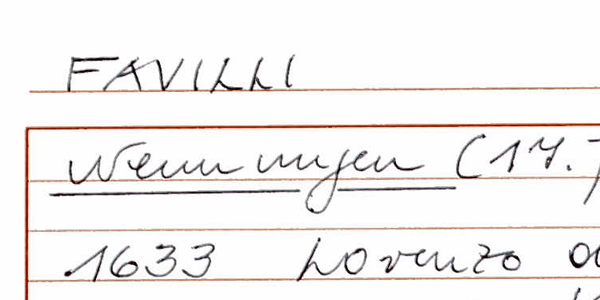 FAVILLI
Nennungen (17.)
1633 Lorenzo